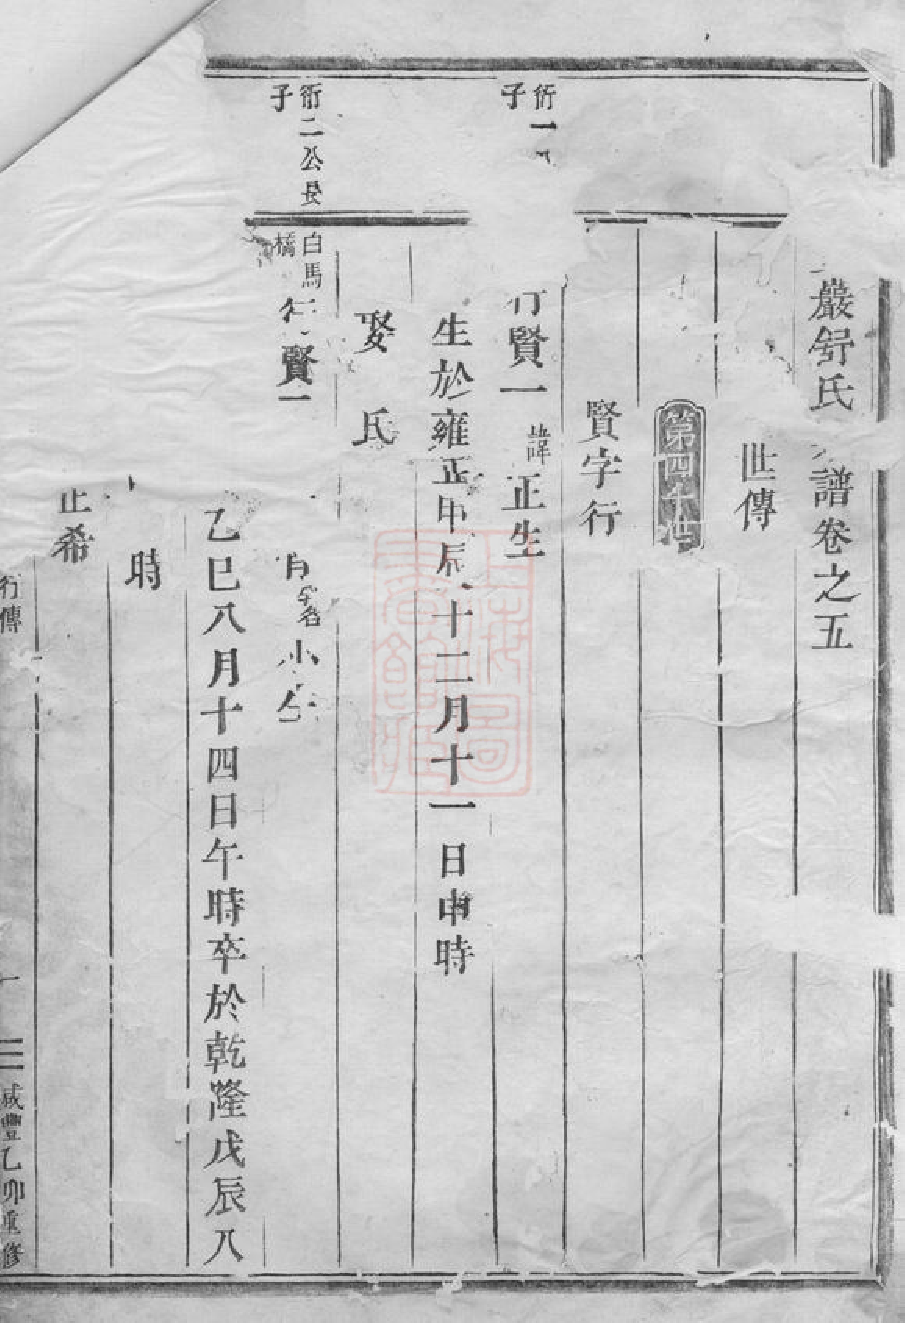 巖舒氏
譜卷之五
世傳
第四十世
賢字行
衍一
子
行賢一 諱正生
生於雍正甲辰 十二月十一日申時
娶 氏
衍二公長
子
白馬
橋
行賢一
小
乙巳八月十四日午時卒於乾隆戊辰八
時
希
行傳
一
咸豐乙卯重修